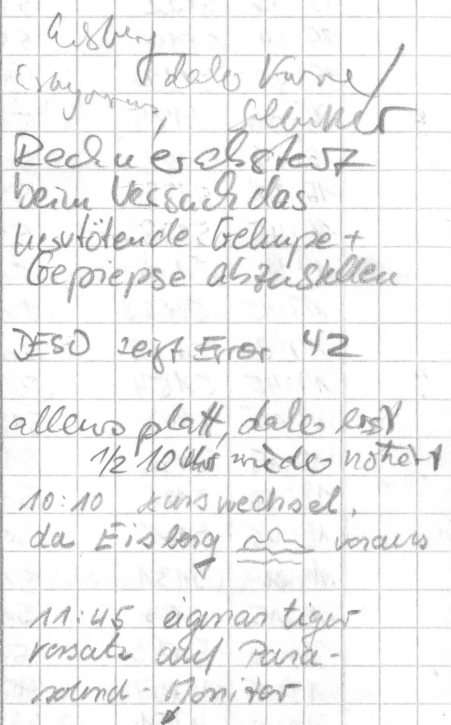 Eisberg
daher Kurve /
Rechnerabsturz
beim Versuch das
nervtötende Gehupe +
Gepiepse abzustellen
DESO zeigt Error 42
alles platt, daher erst
1/2 10 Uhr wieder notiert
10:10 Kurswechsel,
da Eisberg voraus
11:45 eigenartiger
versatz auf Para-
sound - Monitor